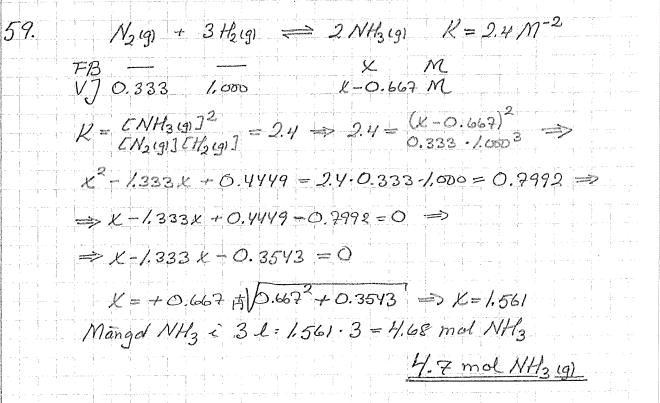 59. N₂(g) + 3H₂(g) ⇌ 2NH₃(g) K = 2.4 M⁻²
FB — — x M
VJ 0.333 1.000 x-0.667 M
K = [NH₃(g)]² / [N₂(g)][H₂(g)] = 2.4 ⇒ 2.4 = (x-0.667)² / 0.333 · 1.000³ ⇒
x² - 1.333x + 0.4449 = 2.4 · 0.333 · 1.000 = 0.7992 ⇒
⇒ x - 1.333x + 0.4449 - 0.7992 = 0 ⇒
⇒ x - 1.333x - 0.3543 = 0
x = +0.667 ± √(0.667² + 0.3543) ⇒ x = 1.561
Mängd NH₃ i 3 l: 1.561 · 3 = 4.68 mol NH₃
4.7 mol NH₃(g)